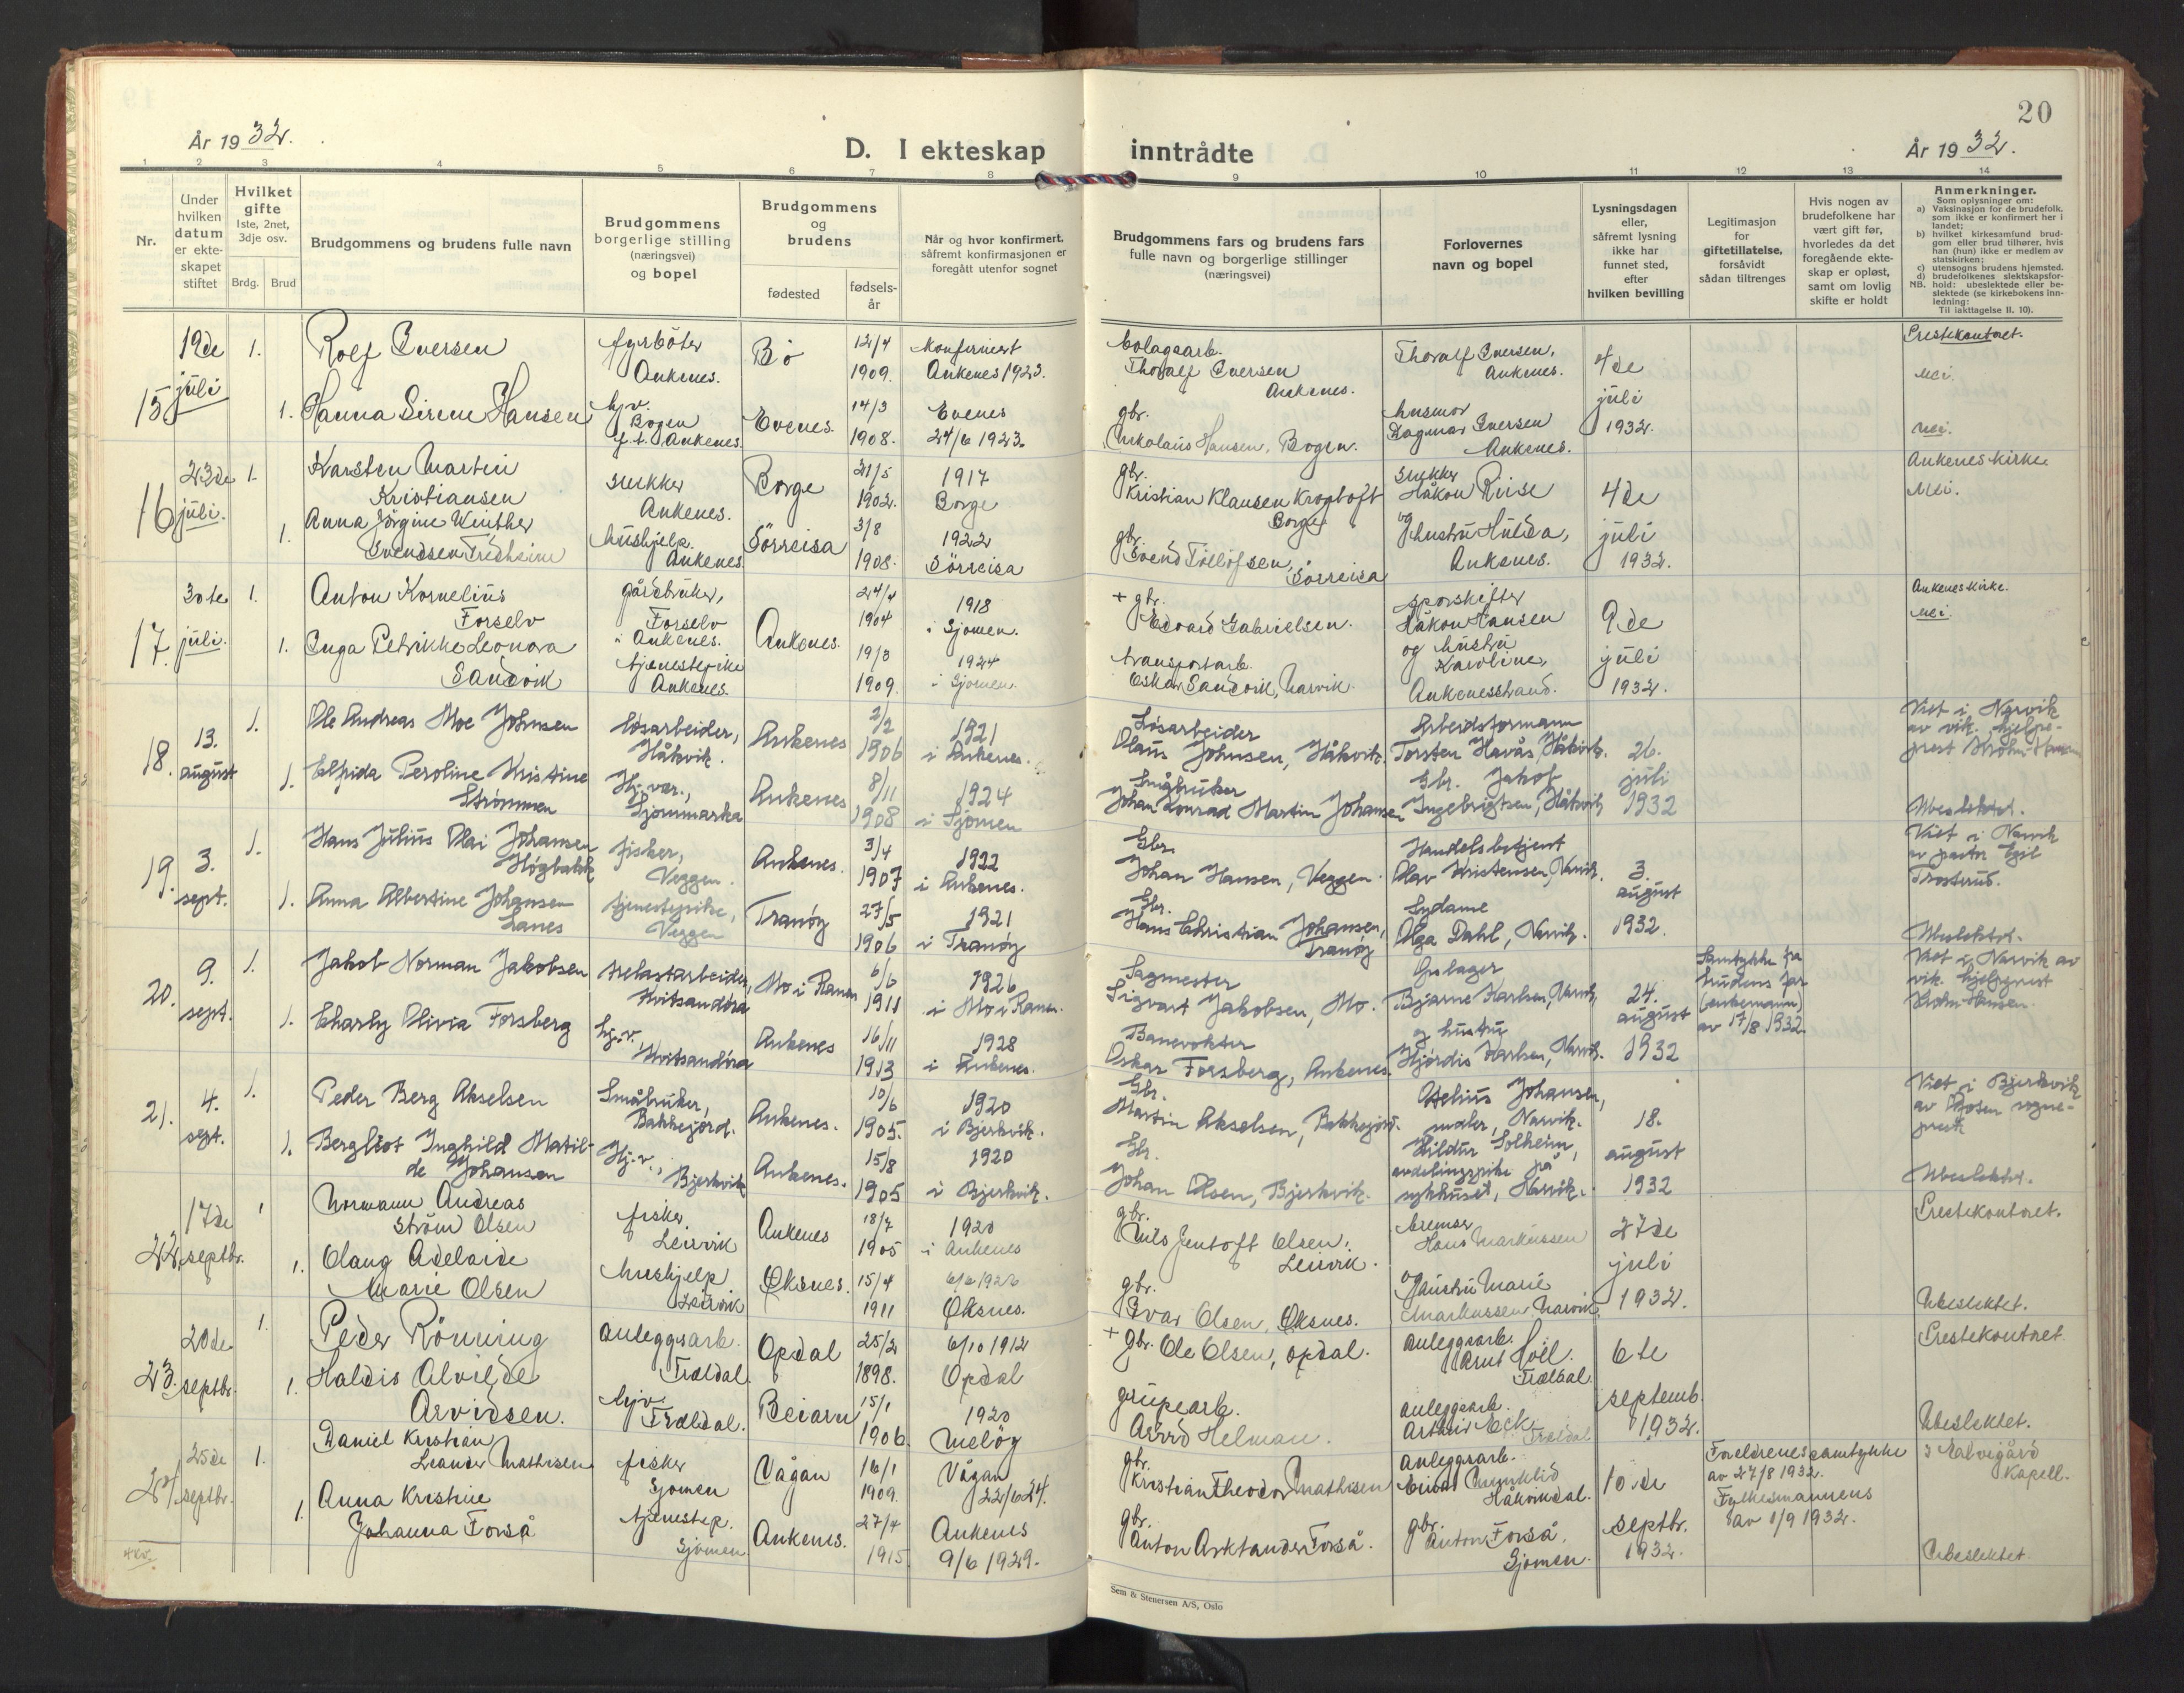 20
År 1932.
D. I ekteskap inntrådte
År 1932.
1 2 3 4 5 6 7 8 9 10 11 12 13 14
Nr.
Under
hvilken
datum
er ekte-
skapet
stiftet
Hvilket
gifte
1ste, 2net,
3dje osv.
Brdg.
Brud
Brudgommens og brudens fulle navn
Brudgommens
borgerlige stilling
(næringsvei)
og bopel
Brudgommens
og
brudens
fødested
fødsels-
år
Når og hvor konfirmert,
såfremt konfirmasjonen er
foregått utenfor sognet
Brudgommens fars og brudens fars
fulle navn og borgerlige stillinger
(næringsvei)
Forlovernes
navn og bopel
Lysningsdagen
eller,
såfremt lysning
ikke har
funnet sted,
efter
hvilken bevilling
Legitimasjon
for
giftetillatelse,
forsåvidt
sådan tiltrenges
Hvis nogen av
brudefolkene har
vært gift før,
hvorledes da det
foregående ekte-
skap er opløst,
samt om lovlig
skifte er holdt
Anmerkninger.
Som oplysninger om:
a) Vaksinasjon for de brudefolk,
som ikke er konfirmert her i
landet;
b) hvilket kirkesamfund brud-
gom eller brud tilhører, hvis
han (hun) ikke er medlem av
statskirken;
c) utensogns brudens hjemsted.
d) brudefolkenes slektskapsfor-
hold: ubeslektede eller be-
slektede (se kirkebokens inn-
ledning:
NB.
Til iakttagelse II. 10).
15
19de
juli
1.
Rolf Iversen
fyrbøter
Ankenes.
Bö
12/4
1909.
Konfirmert
Ankenes 1923.
bolagsarb.
Thoralf Iversen
Ankenes.
Thoralf Iversen,
Ankenes.
4de
juli
1932.
Prestekontoret.
nei.
1.
Hanna Sirene Hansen
hjv.
Bogen
f.t. Ankenes.
Evenes.
14/3
1908.
Evenes
24/6 1923.
gbr.
Nikolaus Hansen, Bogen.
husmor
Dagmar Iversen
Ankenes.
nei.
16
23de
juli.
1.
Karsten Martin
Kristiansen
snekker
Ankenes.
Borge
21/5
1902.
1917
Borge
gbr.
Kristian Klausen Kroptoft
Borge
snekker
Håkon Riise
4de
juli
1932.
Ankenes kirke.
Nei.
1.
Anna Jörgine Winther
Svendsen Fredheim
hushjelp.
Ankenes.
Sörreisa
3/8
1908.
1922
Sörreisa
gbr.
Svend Tollofsen,
Sörreisa
og hustru Hulda,
Ankenes.
17.
30te
juli.
1.
Anton Kornelius
Forselv
gårdbruker,
Forselv
i Ankenes.
Ankenes.
24/4
1904
1918
i Sjomen.
+ gbr.
Edvard Gabrielsen.
sporskifter
Håkon Hansen
og hustru
Karoline,
Ankenesstrand.
9.de
juli
1932.
Ankenes kirke.
nei.
1.
Inga Petrikke Leonora
Sandvik
tjenestepike
Ankenes.
19/3
1909.
1924
i Sjomen.
transportarb.
Oskar Sandvik, Narvik.
18.
13.
august
1.
Ole Andreas Moe Johnsen
løsarbeider,
Håkvik.
Ankenes
2/2
1906
1921
i Ankenes.
Løsarbeider
Olaus Johnsen, Håkvik.
Arbeidsformann
Torsten Havås, Håkvik.
26.
juli
1932
Viet i Narvik
av vik. hjelpe-
prest
1.
Elfrida Peroline Kristine
Strømmen
Hj. vær.,
Sjommarka
Ankenes
8/11
1908
1924
i Sjomen
Småbruker
Johan Konrad Martin Johansen
Gbr. Jakob
Ingebrigtsen, Håkvik
Ubeslektet.
19.
3.
sept.
1.
Hans Julius Olai Johansen
Høgbakk
fisker,
Veggen.
Ankenes.
3/4
1907
1922
i Ankenes.
Gbr.
Johan Hansen, Veggen.
Handelsbetjent
Olav Kristensen, Narvik.
3.
august
1932.
Viet i Narvik
av pastor Egil
Trosterud.
1.
Anna Albertine Johansen
Lanes
tjenestepike,
Veggen
Tranøy
27/5
1906
1921
i Tranøy
Gbr.
Hans Christian Johansen,
Tranøy
Sydame
Olga Dahl, Narvik.
Ubeslektet.
20.
9.
sept.
1.
Jakob Norman Jakobsen
trelastarbeider,
Hvitsandøra
Mo i Ranen
6/6
1911
1926
i Mo i Ranen.
Sagmester
Sigvart Jakobsen, Mo.
Opslager
Bjarne Karlsen, Narvik,
24.
august
1932
Samtykke fra
brudens far
(enkemann)
av 17/8 1932.
Viet i Narvik av
vik. hjelpeprest
1.
Charly Olivia Forsberg
hj.v.
Hvitsandøra
Ankenes
16/11
1913
1928
i Ankenes.
Banevokter
Oskar Forsberg, Ankenes.
og hustru
Hjørdis Karlsen, Narvik.
21.
4.
sept.
1.
Peder Berg Akselsen
Småbruker,
Bakkejord.
Ankenes.
10/6
1905.
1920
i Bjerkvik.
Gbr.
Martin Akselsen, Bakkejord.
Johansen,
maler, Narvik.
18.
august
1932
Viet i Bjerkvik
av sogne-
prest
1.
Bergljot Inghild Matil-
de Johansen
Hj.v.,
Bjerkvik
Ankenes.
15/8
1905
1920
i Bjerkvik.
Gbr.
Johan Olsen, Bjerkvik.
Hildur Solheim,
avdelingspike på
sykhuset, Narvik.
Ubeslektet.
22.
17de
septbr.
1
Normann Andreas
Ström Olsen
fisker
Leirvik
Ankenes
18/7
1905
1920
i Ankenes
gbr.
Nils Jentoft Olsen,
Leirvik.
bremser
Hans Markussen
27de
juli
1932.
Prestekontoret.
1.
Olaug Adelaide
Marie Olsen
hushjelp
Leirvik
Øksnes.
15/4
1911
6/6 1926
Øksnes.
gbr.
Ivar Olsen, Øksnes.
og hustru Marie
Markussen Narvik.
Ubeslektet.
23.
20de
septbr.
1.
Peder Rönning
anleggsarb.
Trældal
Opdal
25/2
1898.
6/10 1912
Opdal
+ gbr. Ole Olsen, Opdal.
anleggsarb.
Arnt Hoel.
Trældal.
6te
septemb.
1932.
Prestekontoret
1.
Haldis Alvilde
Arvidsen.
hjv.
Trældal.
Beiarn
15/1
1906.
1920
Melöy
grupearb.
Arvid Helman.
anleggsarb.
Arthur Eck
Trældal
Ubeslektet.
24
25de
septbr.
1.
Daniel Kristian
Leander Mathisen
fisker
Sjomen
Vågan
16/1
1909.
Vågan
22/6 24.
gbr.
Kristian Theodor Mathisen
anleggsarb.
Håkvikdal.
10.de
septbr.
1932.
Foreldrenes samtykke
av 27/8 1932.
Fylkesmannens
av 1/9 1932.
i Elvegård
Kapell.
1.
Anna Kristine
Johanna Forså
tjenestep.
Sjomen
Ankenes.
27/4
1915.
Ankenes
9/6 1929.
gbr.
Anton Arktander Forså.
gbr.
Anton Forså.
Sjomen.
Ubeslektet.
Sem & Stenersen A/S, Oslo